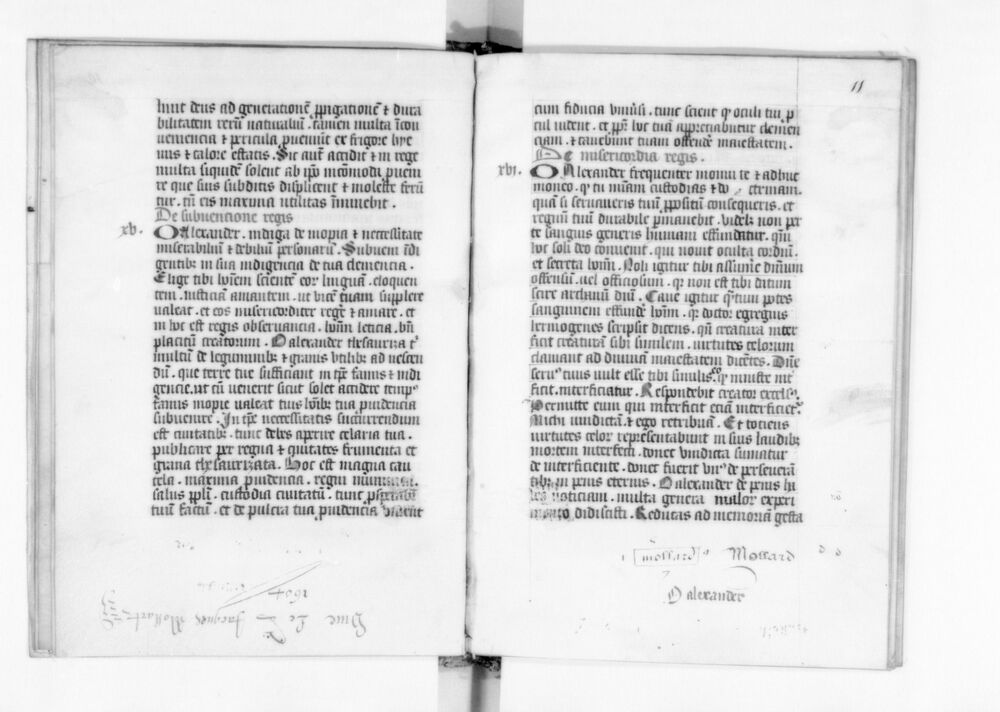 luut deus ad generationē ꝓpagationē ⁊ dura
bilitatem rerū naturaliū . tamen multa īcon
ueniencia ⁊ pericula ꝓueniūt ex frigore hye
mis ⁊ calore estatis . Sic aūt accidit ⁊ in rege
multa siquidē solent ab ip̄o incōmoda ꝓueni
re que suis subditis displicent ⁊ moleste ferū
tur . cū eis maxima utilitas īmineb̄it .
De subuencione regis
xv. O Alexander . indiga de inopia ⁊ necessitate
miserabiliū ⁊ debiliū personarū . Subueni īdi
gentibꝫ in sua indigencia de tua clemencia .
Elige tibi hoīem scientē eorꝫ linguā . eloquen
tem . iusticiā amantem . ut vicē tuam supplere
valeat . et eos misericorditer regē ⁊ amare . et
in hoc est regis obseruancia . hoīm leticia . bn̄
placitū creatorum . O alexander thesauriza
multū de leguminibꝫ ⁊ granis vtilibꝫ ad uescen
dū . que terre tue sufficiant in tp̄e famis ⁊ indi
gencie . ut cū venerit sicut solet accidere tempꝰ
famis inopie ualeat tuis hoībꝫ tua ꝓuidencia
subuenire . In tp̄e necessitatis succurrendum
est ciuitatibꝫ . tunc debes aperire celaria tua .
publicare per regna ⁊ ciuitates frumenta et
grana thesaurizata . Hoc est magna cau
cela . maxima ꝓuidencia . regni
salus ppl̄i . custodia ciuitatū . tunc
tuū factū . et de pulcra tua ꝓuidencia
Jacques Mollart
1604
11
cum fiducia vniūsi . tunc scient qꝫ oculi tui ꝓ
cul uident . et ꝓpt̄ hoc tuā appreciabuntur clemen
ciam . ⁊ cauebunt tuam offendē maiestatem .
De misericordia regis .
xvi. O Alexander frequenter monui te ⁊ adhuc
moneo . qꝫ tu meam custodias ⁊ do trinam .
quā si seruaueris tuū ꝓpositū consequeris . et
regnū tuū durabile ꝑmanebit . Videlꝫ non par
te sanguis generis hūmani effundatur . qm̄
hoc soli deo conuenit . qui nouit occulta cordiū .
et secreta hoīm . Noli igitur tibi assumē diuinum
offensiū . uel officiosum . qꝛ non est tibi ditum
scire archanū diū . Caue igitur qꝫtum potes
sanguinem effundē hoīm . qꝛ doctor egregius
hermogenes scripsit dicens . qn̄ creatura inter
ficit creaturā sibi similem . virtutes celorum
clamant ad diuinā maiestatem dicētes . Dn̄e
seruꝰ tuus uult esse tibi similis . qꝫ iniuste int̄
ficit . interficiatur . Respondebit creator excelsꝰ .
Permitte eum qui interficit etiā interficietꝰ .
Michi uindictā . ⁊ ego retribuā . Et totiens
virtutes celorꝫ representabunt in suis laudibꝫ
mortem interfecti . donec vindicta sumatur
de interficiente . donec fuerit vnꝰ de perseuerā
tibꝫ in penis eternis . O alexander de penis hi
noticiam . multa genera malorꝫ experi
mento didicisti . Reducas ad memoriā gesta
mollard Mollard
O alexander